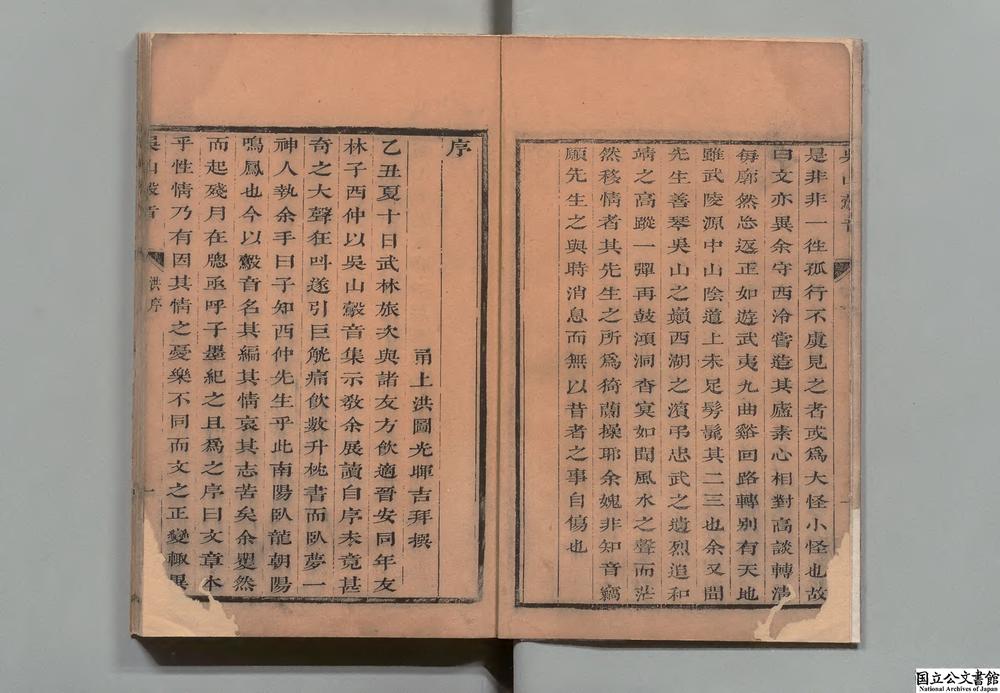 是非非一徃孤行不虞見之者或爲大怪小怪也故
曰文亦異余守西泠嘗造其廬素心相對高談轉清
每廓然忘返正如遊武夷九曲谿回路轉别有天地
雖武陵源中山陰道上未足髣髴其二三也余又聞
先生善琴吳山之巔西湖之濱弔忠武之遺烈追和
靖之高蹤一彈再鼓澒洞杳冥如聞風水之聲而茫
然移情者其先生之所爲猗蘭操耶余媿非知音竊
願先生之與時消息而無以昔者之事自傷也
序
甬上洪圖光暉吉拜撰
乙丑夏十日武林旅次與諸友方飲適晉安同年友
林子西仲以吳山鷇音集示教余展讀自序未竟甚
奇之大聲狂叫遂引巨觥痛飲數升枕書而臥夢一
神人執余手曰子知西仲先生乎此南陽臥龍朝陽
鳴鳳也今以鷇音名其編其情哀其志苦矣余矍然
而起殘月在牕亟呼子墨紀之且爲之序曰文章本
乎性情乃有因其情之憂樂不同而文之正變輙異
吳山鷇音
洪序
一
国立公文書館
National Archives of Japan